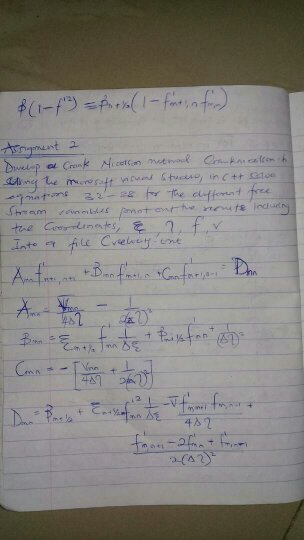 β(1 - f'²) ≡ βn+1/2 (1 - f'm+1,n f'mn)
Assignment 2
Develop a Crank Nicolson network Cranknicolson.h
using the microsoft visual studio, in C++ solve
equations 32-38 for the different free
stream variables print out the results including
the Coordinates, ξ, η, f', v
Into a file
Amn f'm+1,n+1 + Bmn f'm+1,n + Cmn f'm+1,n-1 = Dmn
Amn = Vmn/4Δη - 1/2(Δη)²
Bmn = ξm+1/2 f'mn 1/Δξ + βm+1/2 f'mn + 1/(Δη)²
Cmn = -[Vmn/4Δη + 1/2(Δη)²]
Dmn = βm+1/2 + ξm+1/2 f'²mn 1/Δξ - V f'mn+1 f'm,n-1 +
4Δη
f'mn+1 - 2f'mn + f'm,n-1
2(Δη)²